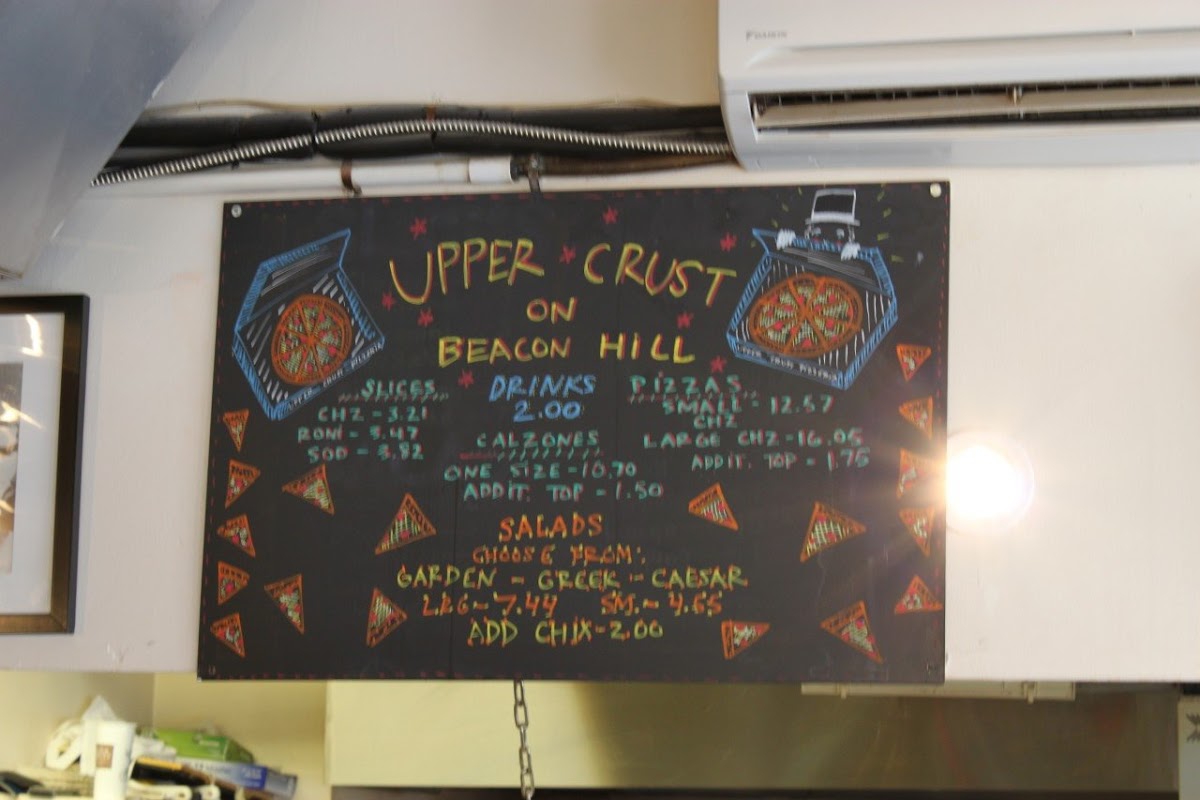 DAIKIN
UPPER CRUST
ON
BEACON HILL
SLICES
CHZ - 3.21
RONI - 3.47
SOD - 3.82
DRINKS
2.00
CALZONES
ONE SIZE - 10.70
ADDIT. TOP - 1.50
PIZZAS
SMALL - 12.57
CHZ
LARGE CHZ - 16.05
ADDIT. TOP - 1.75
SALADS
CHOOSE FROM:
GARDEN - GREEK - CAESAR
LRG - 7.44 SM. - 4.65
ADD CHIX - 2.00